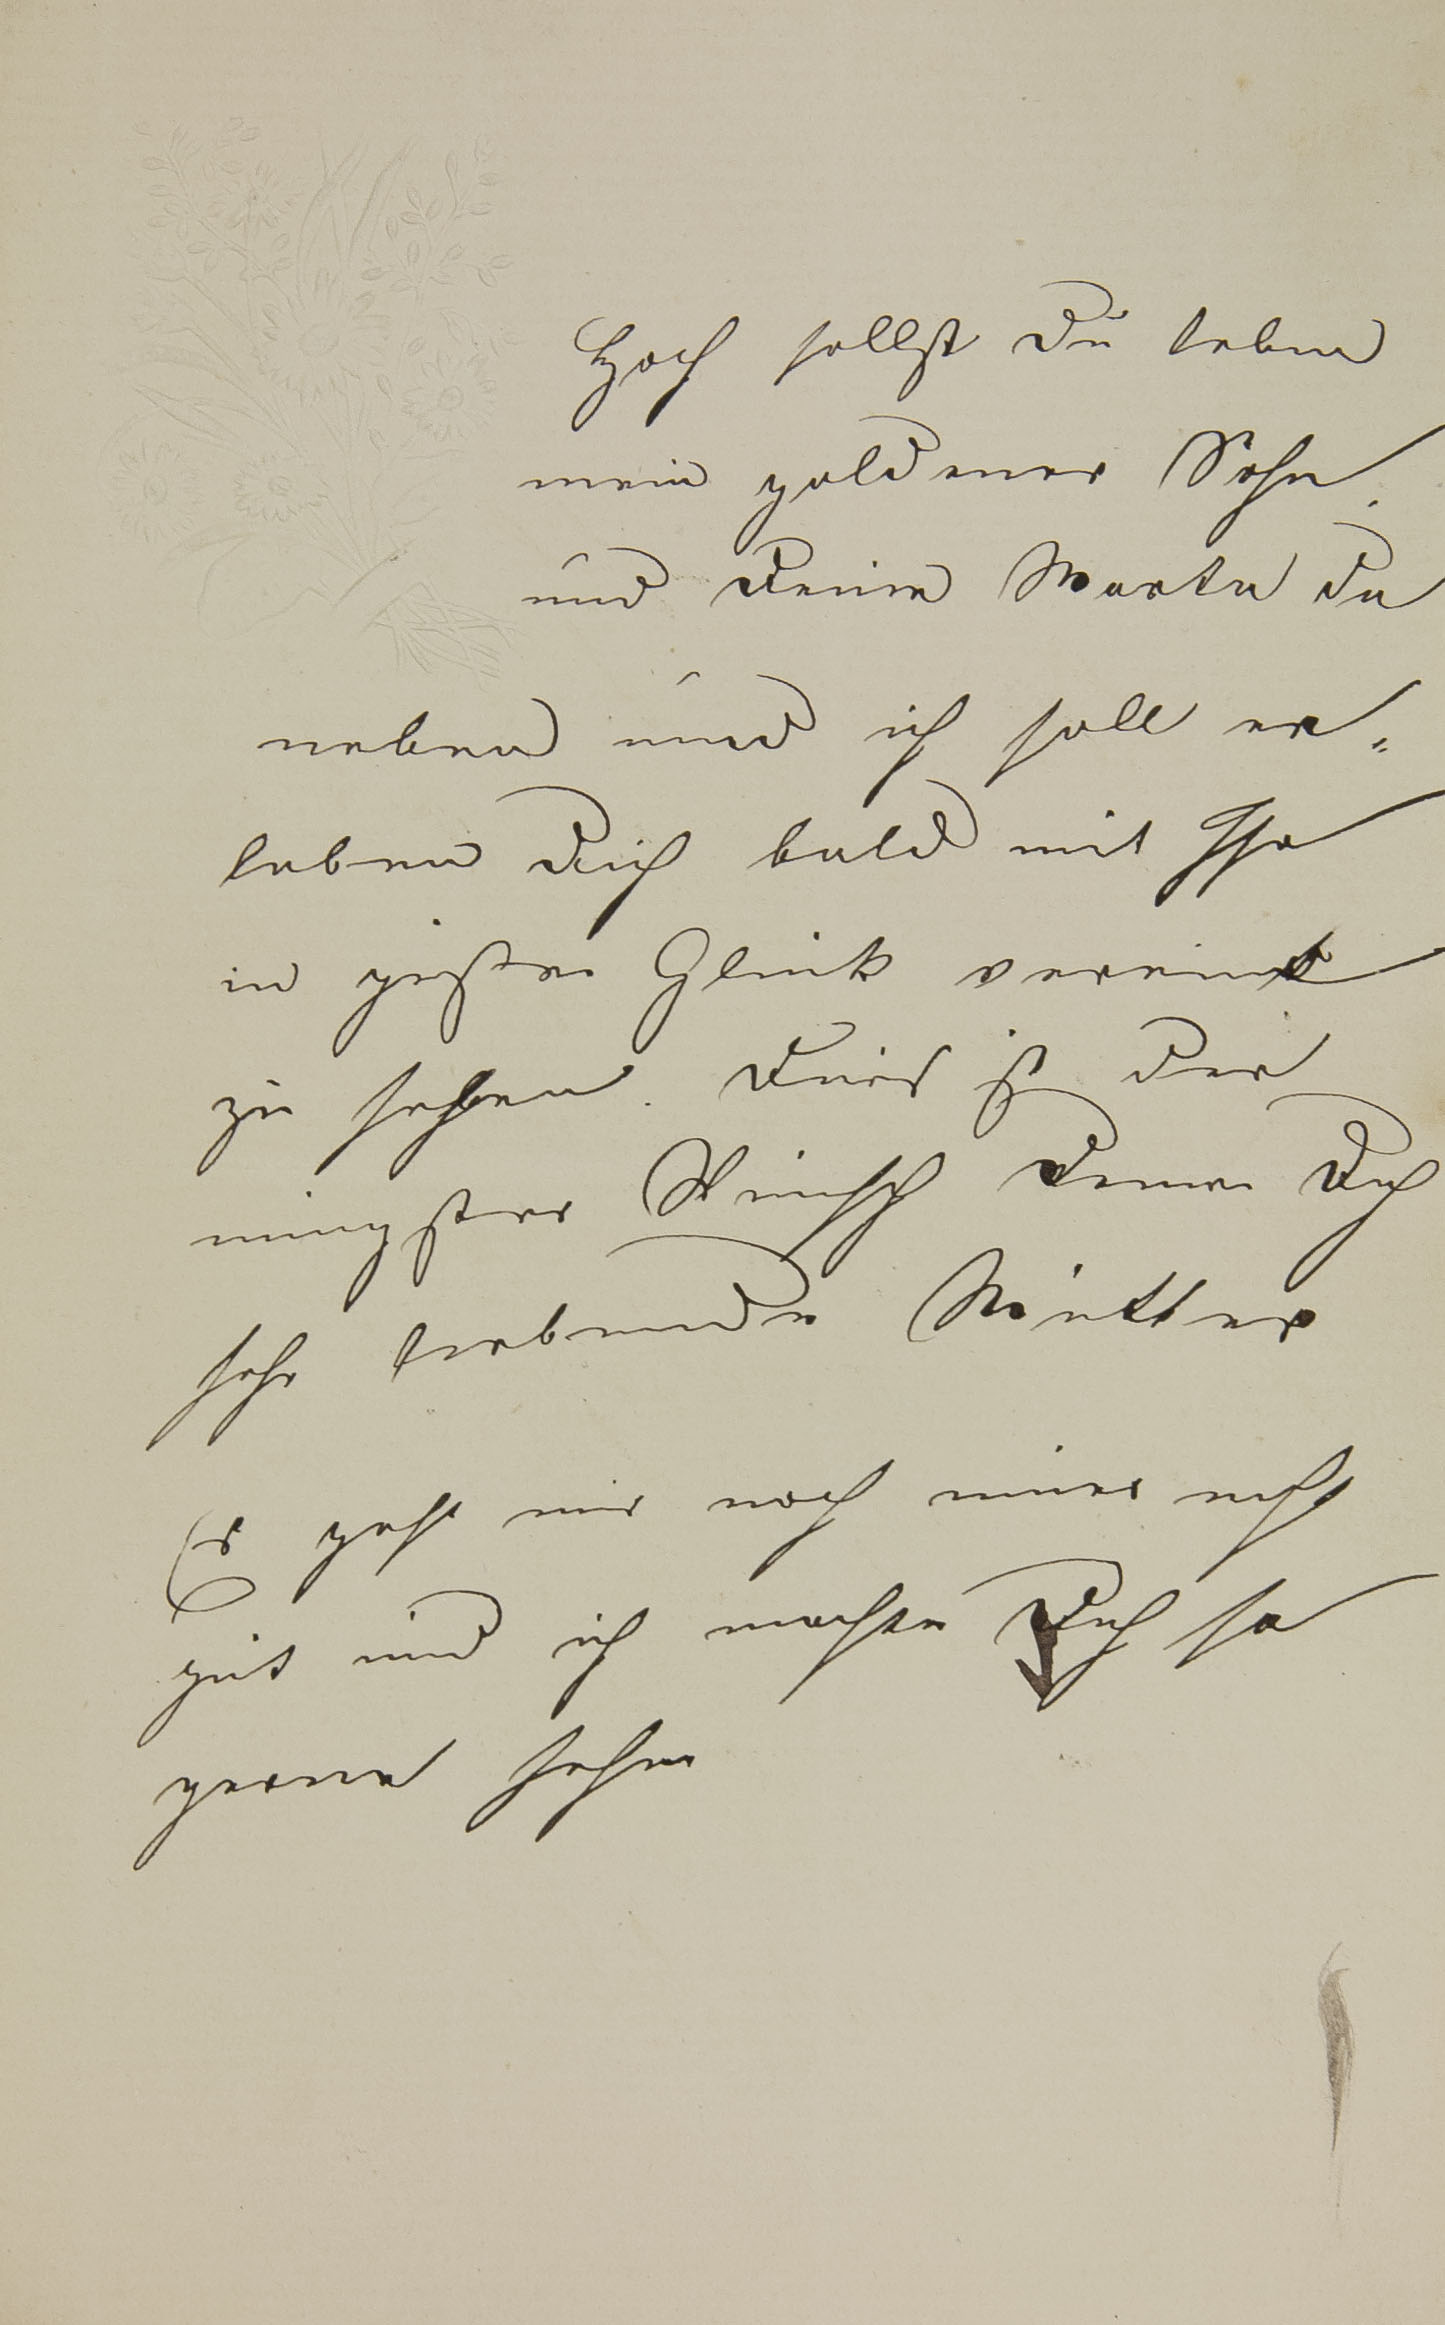 Hoch sollst Du leben
mein goldener Sohn,
und Deine Marta da
neben und ich soll er=
leben Dich bald mit Ihr
in Glück vereint
zu sehen. Dies ist der
Wunsch Deiner Dich
sehr liebende Mutter
Es geht mir noch recht
gut und ich mochte Dich so
gerne sehen